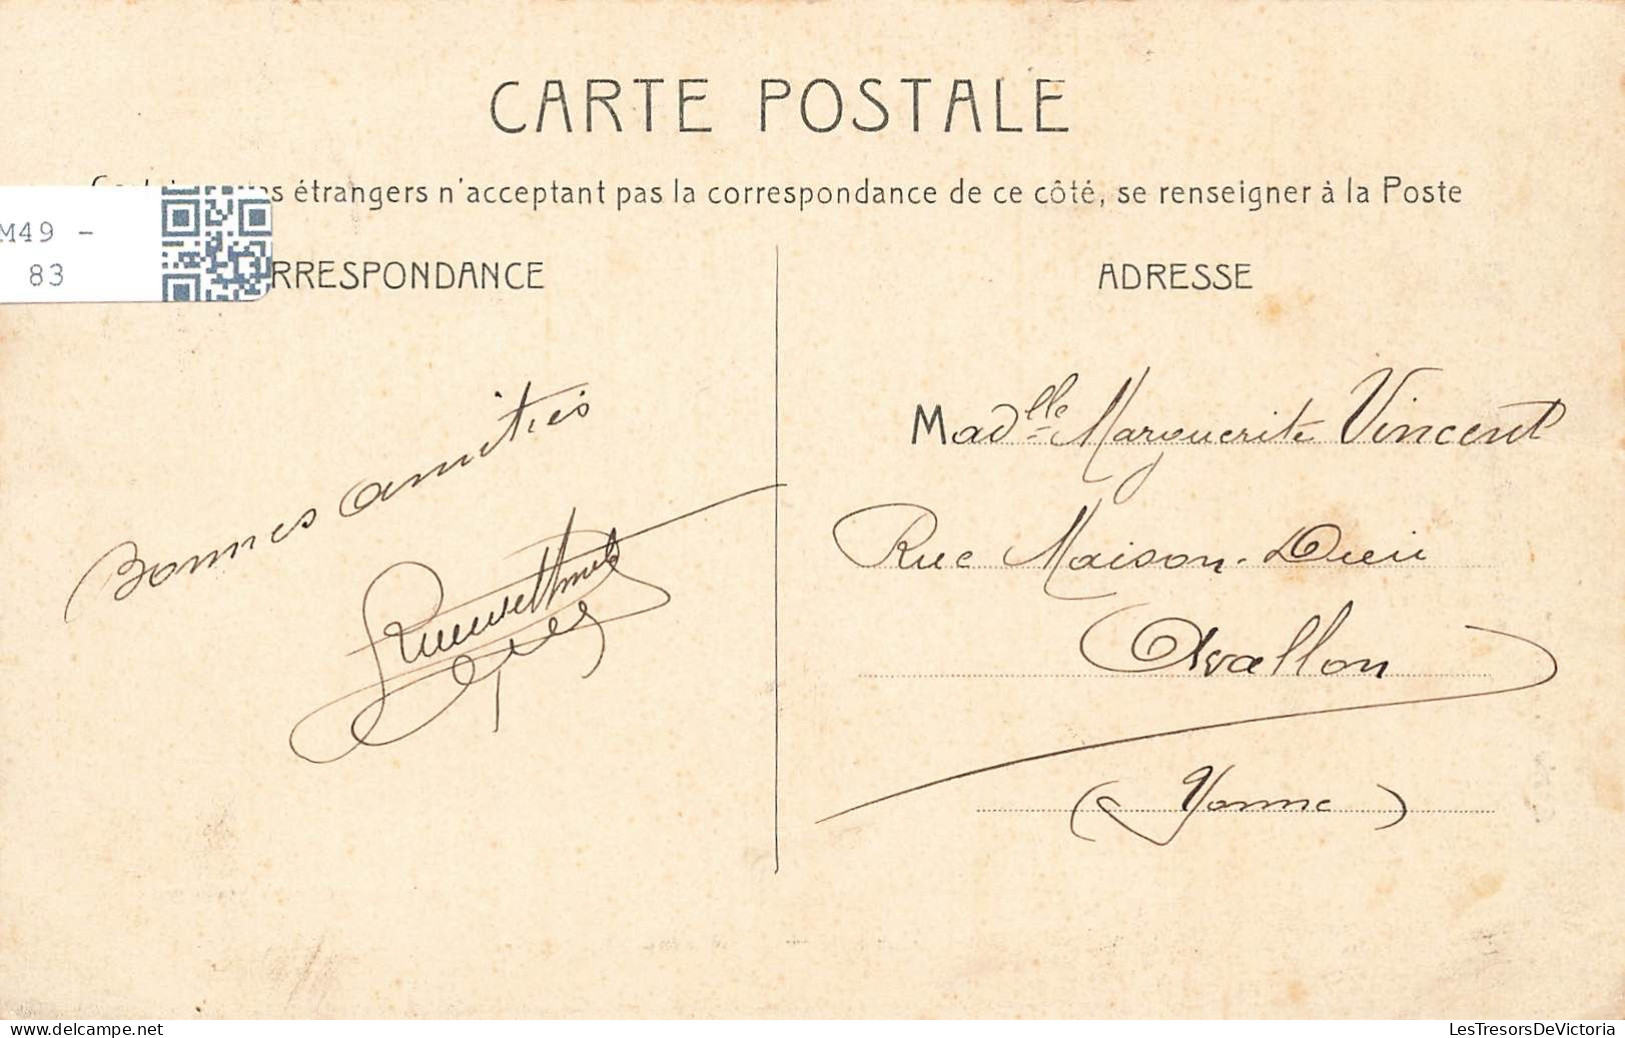 CARTE POSTALE
étrangers n'acceptant pas la correspondance de ce côté, se renseigner à la Poste
M49 -
83
RRESPONDANCE
ADRESSE
Bonnes amitiés
Madlle Marguerite Vincent
Rue Maison-Dieu
Avallon
(Yonne)
delcampe.net
LesTresorsDeVictoria